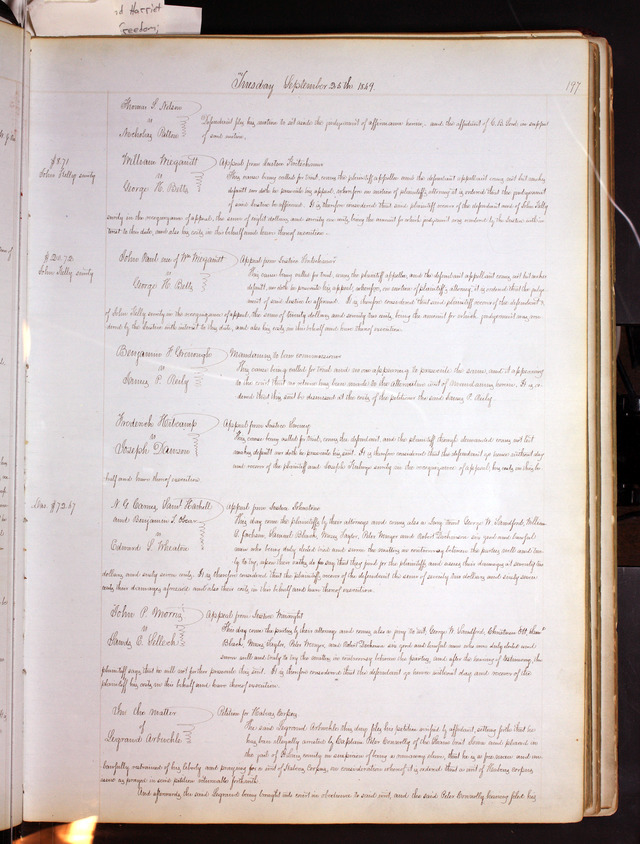 nd Harriet
Freedom;
Tuesday September 25th 1849.
197
Thomas S. Nelson
vs
Nicholas Patton
Defendant files his motion to set aside the judgment of affirmance herein, and the affidavit of in support
of said motion.
$8.71
John Kelly surety
William Megandt
vs
George H. Betts
Appeal from Justice
This cause being called for trial, comes the plaintiff appellee and the defendant appellant comes not but makes
default nor doth he prosecute his appeal, wherefore on motion of plaintiffs attorney it is ordered that the judgment
of said Justice be affirmed. It is therefore considered that said plaintiff recover of the defendant and of John Kelly
surety in the recognizance of appeal, the sum of eight dollars and seventy one cents being the amount for which judgment was rendered by the Justice with
interest to this date, and also his costs in this behalf and have thereof execution.
$20.72
John Kelly surety
John Paul use of Wm Megandt
vs
George H. Betts
Appeal from Justice
This cause being called for trial, comes the plaintiff appellee, and the defendant appellant comes not but makes
default, nor doth he prosecute his appeal, wherefore, on motion of plaintiffs attorney, it is ordered that the judg-
ment of said Justice be affirmed. It is therefore considered that said plaintiff recover of the defendant &
of John Kelly surety in the recognizance of appeal, the sum of twenty dollars and seventy two cents being the amount for which judgment was ren-
dered by the Justice with interest to this date, and also his costs in this behalf and have thereof execution.
Benjamin F.
vs
James P. Reily
Mandamus to
This cause being called for trial and no one appearing to prosecute the same, and it appearing
to the court that no return has been made to the alternative writ of Mandamus herein. It is or-
dered that this suit be dismissed at the costs of the petitioner the said James P. Reily
Frederick Hitcamp
vs
Joseph
Appeal from Justice
This cause being called for trial, comes the defendant, and the plaintiff though demanded comes not but
makes default nor doth he prosecute his suit. It is therefore considered that the defendant go hence without day
and recover of the plaintiff and Joseph surety in the recognizance of appeal, his costs in this be-
half and have thereof execution.
$72.67
N. G. Carnes, Saml
and Benjamin
vs
Edward S. Wheaton
Appeal from Justice Johnstone
This day come the plaintiffs by their attorneys and comes also a Jury towit George W. Sandford, William
C. Jackson, Samuel Black, Moses Taylor, Peter Menger and Robert Dickerson six good and lawful
men who being duly elected tried and sworn the matters in controversy between the parties, well and tru-
ly to try, upon their oaths, do say that they find for the plaintiffs and assess their damages at seventy two
dollars and sixty seven cents. It is therefore considered that the plaintiffs recover of the defendant the sum of seventy two dollars and sixty seven
cents, their damages aforesaid and also their costs in this behalf and have thereof execution.
John P. Morris
vs
C. Selleck
Appeal from Justice
This day come the parties by their attorneys and comes also a jury to wit, George W. Sandford, Christian Ott, Saml
Black, Moses Taylor, Peter Menger, and Robert Dickerson six good and lawful men who were duly elected and
sworn well and truly to try the matters in controversy between the parties, and after the hearing of testimony the
plaintiff says that he will not further prosecute this suit. It is therefore considered that the defendant go hence without day and recover of the
plaintiff his costs in this behalf and have thereof execution.
In the matter
of
Legrand Arbuckle
Petition for Habeas Corpus
The said Legrand Arbuckle this day files his petition verified by affidavit, setting forth that he
has been illegally arrested by Captain Peter Conwally of the Steam boat and placed in
the jail of county on suspicion of being a runaway slave, that he is a free man and un-
lawfully restrained of his liberty and praying for a writ of Habeas Corpus, on consideration whereof it is ordered that a writ of Habeas Corpus,
issue as prayed in said petition returnable forthwith.
And afterwards, the said Legrand being brought into court in obedience to said writ, and the said Peter Conwally having filed his